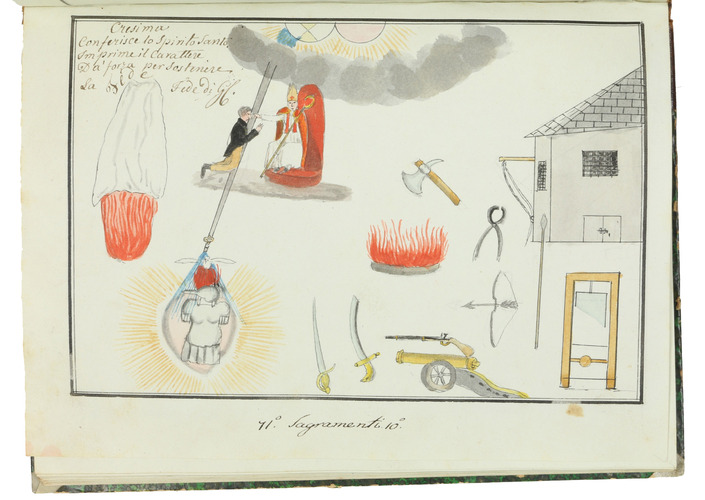 Cresima
Conferisce lo Spirito Santo,
Imprime il Carattere
Dà forza per sostenere
La Fede di
71.º Sagramenti. 10.º